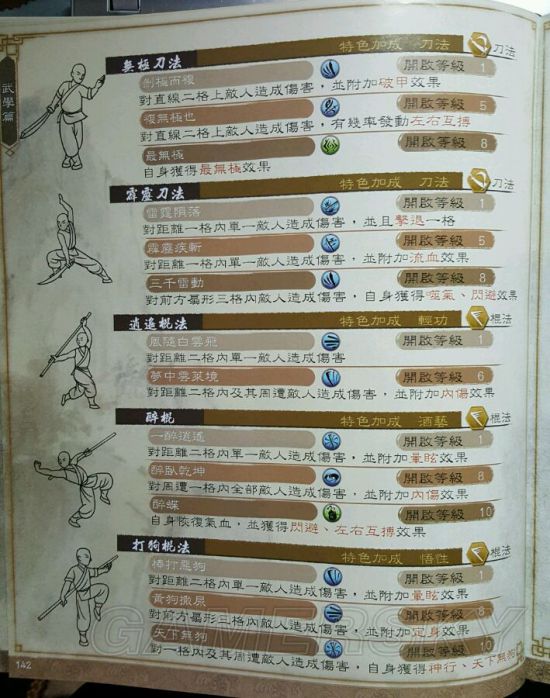 武學篇
無極刀法 特色加成 刀法 刀法
剝極而複 開啟等級 1
對直線二格上敵人造成傷害，並附加破甲效果
複無極也 開啟等級 5
對直線二格上敵人造成傷害，有幾率發動左右互搏
最無極 開啟等級 8
自身獲得最無極效果
霹靂刀法 特色加成 刀法 刀法
雷霆隕落 開啟等級 1
對距離一格內單一敵人造成傷害，並且擊退一格
霹靂疾斬 開啟等級 5
對距離一格內單一敵人造成傷害，並附加流血效果
三千雷動 開啟等級 8
對前方扇形三格內敵人造成傷害，自身獲得噬氣、閃避效果
逍遙棍法 特色加成 輕功 棍法
風隨白雲飛 開啟等級 1
對距離二格內單一敵人造成傷害
夢中雲萊境 開啟等級 6
對距離二格內及其周遭敵人造成傷害，並附加內傷效果
醉棍 特色加成 酒藝 棍法
一醉逍遙 開啟等級 1
對距離二格內單一敵人造成傷害，並附加暈眩效果
醉臥乾坤 開啟等級 8
對周遭一格內全部敵人造成傷害，並附加內傷效果
醉蝶 開啟等級 10
自身恢復氣血，並獲得閃避、左右互搏效果
打狗棍法 特色加成 悟性 棍法
棒打惡狗 開啟等級 1
對距離二格內單一敵人造成傷害，並附加暈眩效果
黃狗撒尿 開啟等級 8
對前方扇形二格內敵人造成傷害，並附加定身效果
天下無狗 開啟等級 10
對一格內及其周遭敵人造成傷害，自身獲得神行、天下無狗
142
GAMERSKY